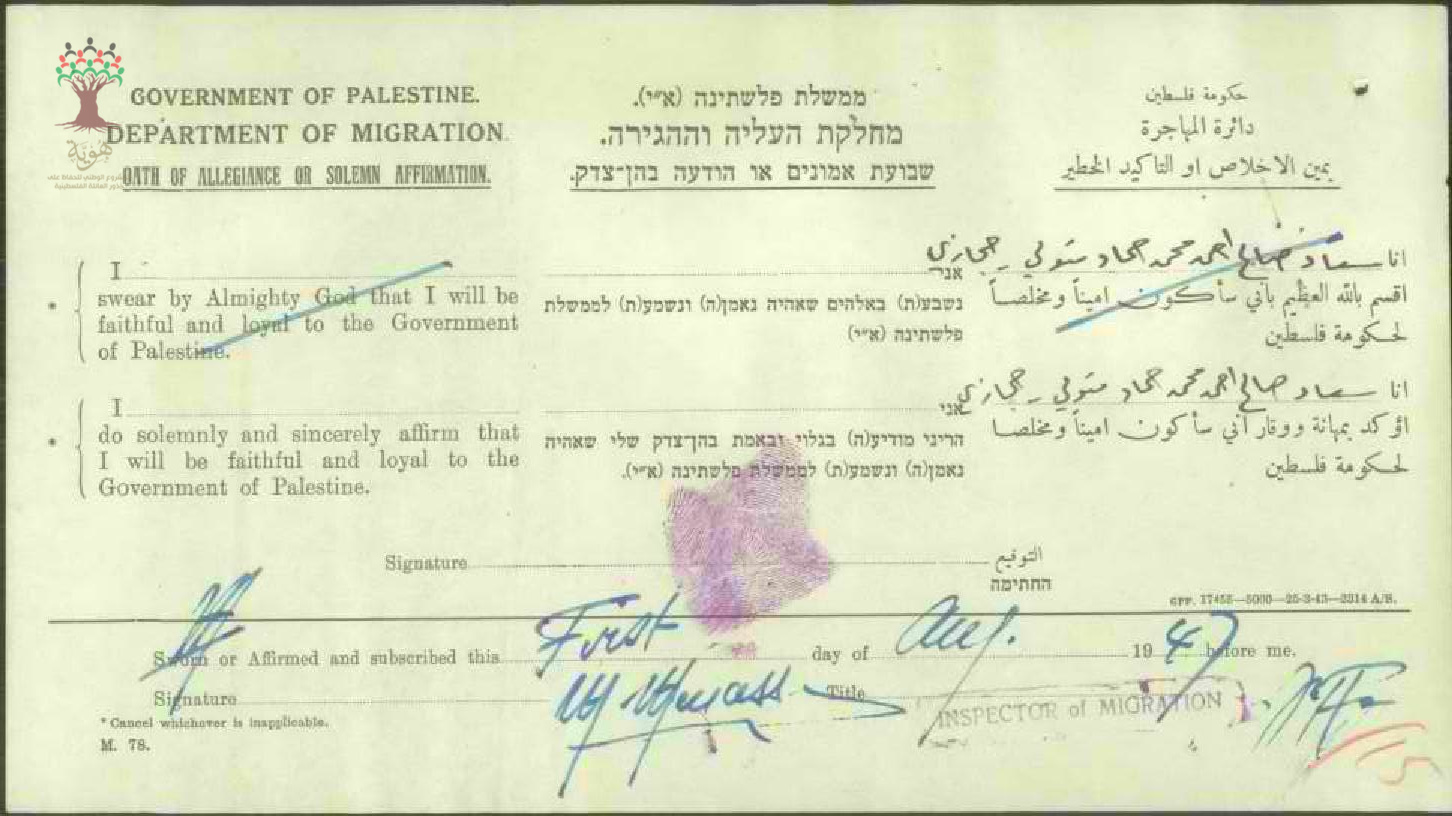 هوية
GOVERNMENT OF PALESTINE.
DEPARTMENT OF MIGRATION.
OATH OF ALLEGIANCE OR SOLEMN AFFIRMATION.
ממשלת פלשתינה (א״י).
מחלקת העליה וההגירה.
שבועת אמונים או הודעה בהן־צדק.
حكومة فلسطين
دائرة المهاجرة
يمين الاخلاص او التاكيد الخطير
* I
swear by Almighty God that I will be
faithful and loyal to the Government
of Palestine.
אני
נשבע(ת) באלהים שאהיה נאמן(ה) ונשמע(ת) לממשלת
פלשתינה (א״י)
انا سعاد صالح احمد محمد حماد متولي حجازي
اقسم بالله العظيم بأني سأكون اميناً ومخلصاً
لحكومة فلسطين
* I
do solemnly and sincerely affirm that
I will be faithful and loyal to the
Government of Palestine.
אני
הריני מודיע(ה) בגלוי ובאמת בהן־צדק שלי שאהיה
נאמן(ה) ונשמע(ת) לממשלת פלשתינה (א״י).
انا سعاد صالح احمد محمد حماد متولي حجازي
اؤكد بمهانة ووقار أني سأكون اميناً ومخلصاً
لحكومة فلسطين
Signature التوقيع
החתימה
GPP. 17458—5000—25-3-43—3314 A/S.
Sworn or Affirmed and subscribed this First day of Aug. 1947 before me.
Signature Title INSPECTOR of MIGRATION
* Cancel whichever is inapplicable.
M. 78.